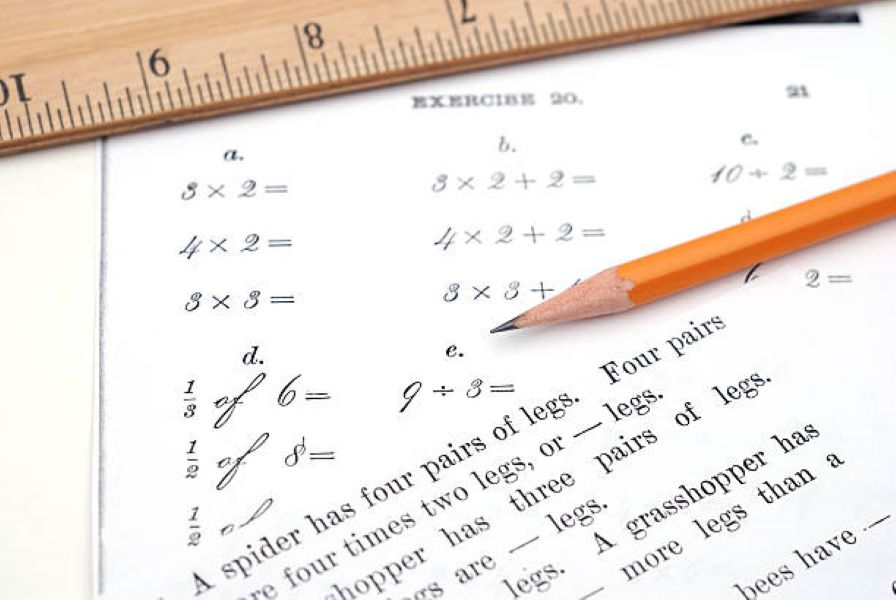 10 9 8 7
EXERCISE 20. 21
a. b. c.
3 × 2 = 3 × 2 + 2 = 10 ÷ 2 =
4 × 2 = 4 × 2 + 2 =
3 × 3 = 3 × 3 + 2 =
d. e.
1/3 of 6 = 9 ÷ 3 =
1/2 of 8 =
1/2 of
A spider has four pairs of legs. Four pairs
are four times two legs, or — legs.
hopper has three pairs of legs.
legs are — legs. A grasshopper has
legs. — more legs than a
bees have —